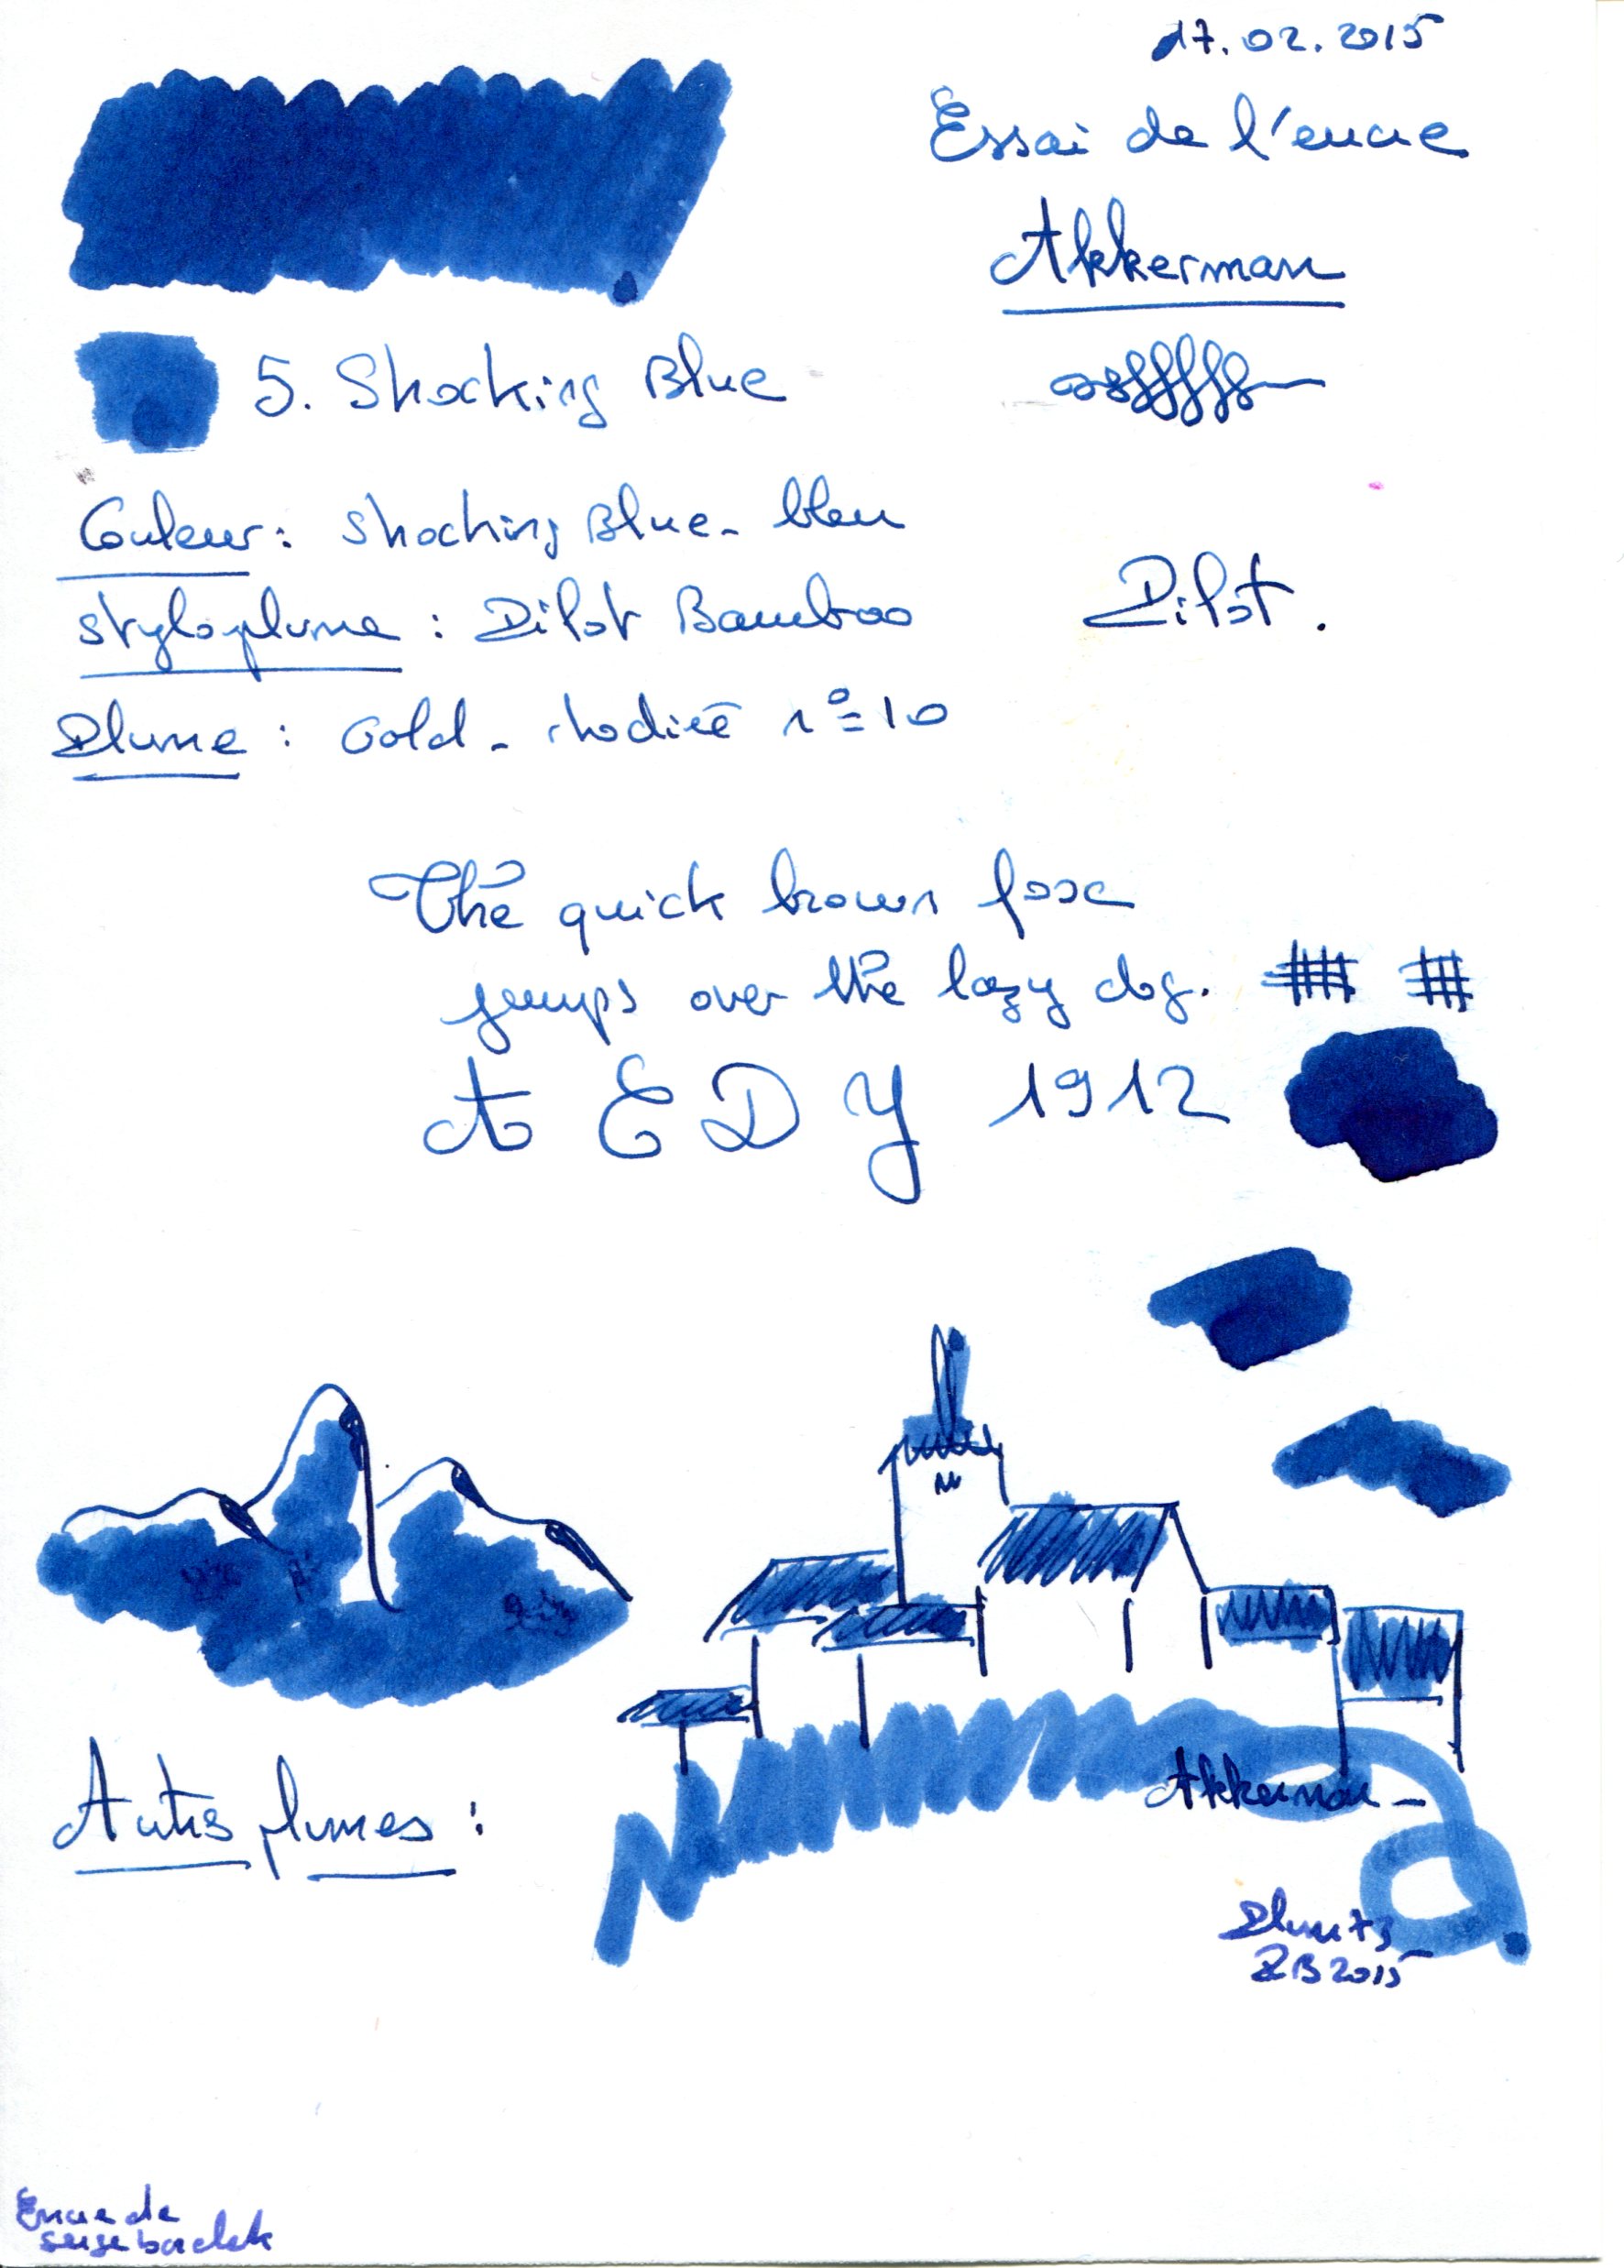 17.02.2015
Essai de l'encre
Akkerman
5. Shocking Blue
Couleur : Shocking Blue - bleu
Stylo plume : Pilot Bamboo
Pilot.
Plume : Gold - rhodiée n°=10
The quick brown fox
jumps over the lazy dog.
A E D Y 1912
Akkerman -
Autres plumes :
2015
Encre de